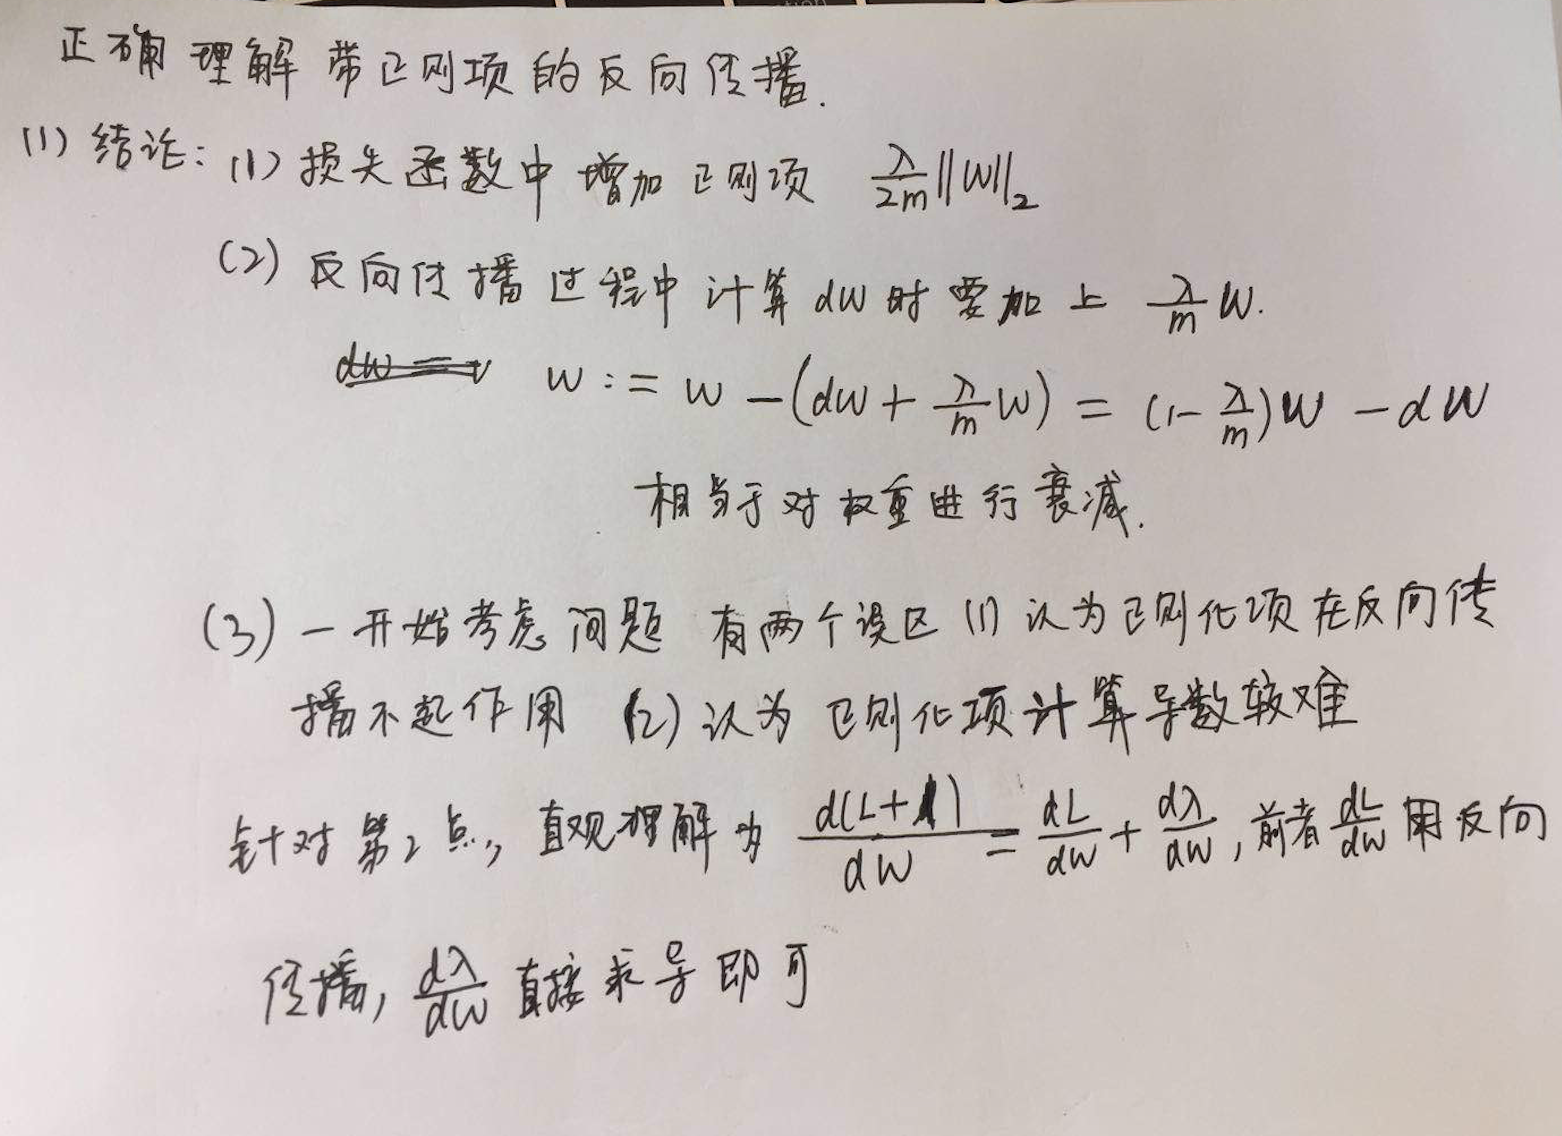 正确理解带正则项的反向传播.
(1) 结论: (1) 损失函数中增加正则项 λ/2m ||W||₂
(2) 反向传播过程中计算dw时要加上 λ/m W.
W := W - (dW + λ/m W) = (1 - λ/m)W - dW
相当于对权重进行衰减.
(3) 一开始考虑问题 有两个误区 (1) 认为正则化项在反向传
播不起作用 (2) 认为正则化项计算导数较难
针对第2点, 直观理解为 d(L+λ)/dW = dL/dW + dλ/dW, 前者 dL/dW 用反向
传播, dλ/dW 直接求导即可